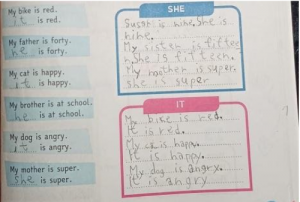 My bike is red.
it is red.
My father is forty.
he is forty.
My cat is happy.
it is happy.
My brother is at school.
he is at school.
My dog is angry.
it is angry.
My mother is super.
She is super.
SHE
Susan is nine, She is
nine.
My sister is fiftee
n, She is fifteen.
My mother is super.
She is super
IT
My bike is red.
It is red.
My cat is happy.
It is happy.
My dog is angry.
It is angry